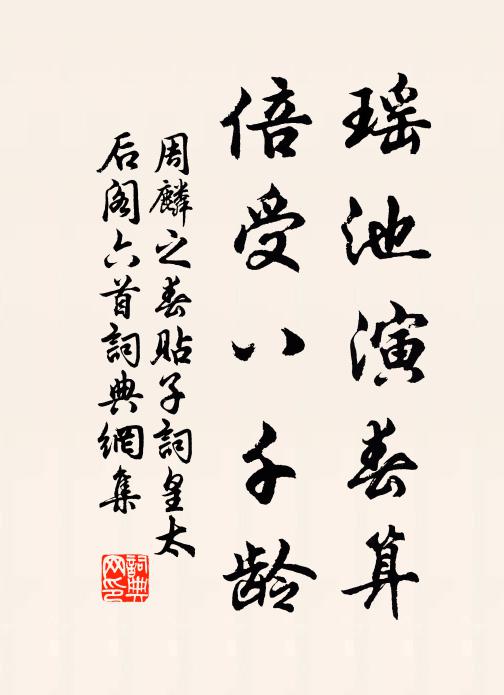 瑶池演春算
倍受八千龄
周麟之春贴子詞皇太
后阁六首詞典網集
詞典
网印